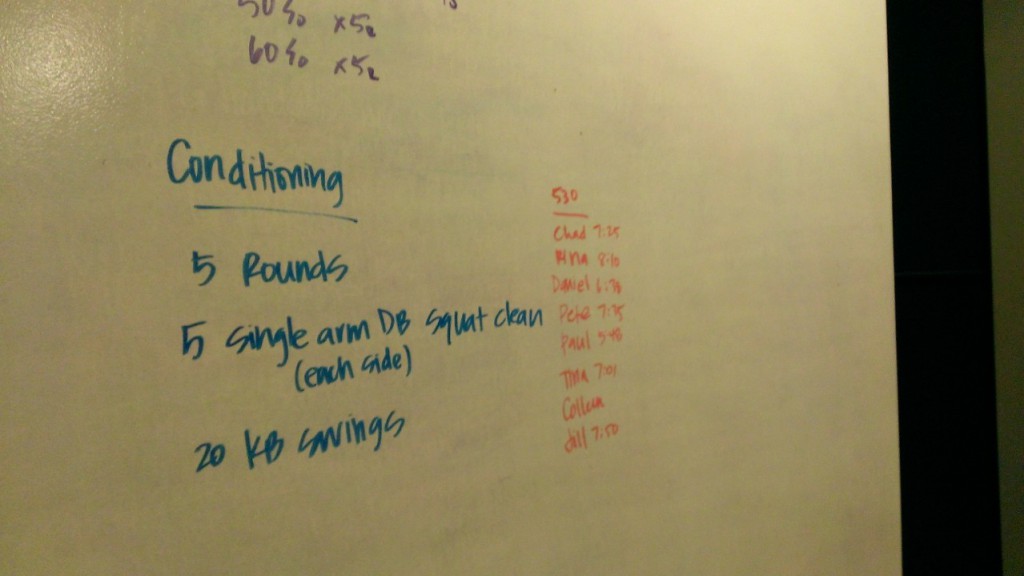 50% x5e
60% x5e
Conditioning
5 Rounds
5 single arm DB squat clean
(each side)
20 KB swings
530
Chad 7:25
8:10
Daniel
Pete 7:35
Paul 5:48
Tina 7:01
Colleen
Jill 7:50